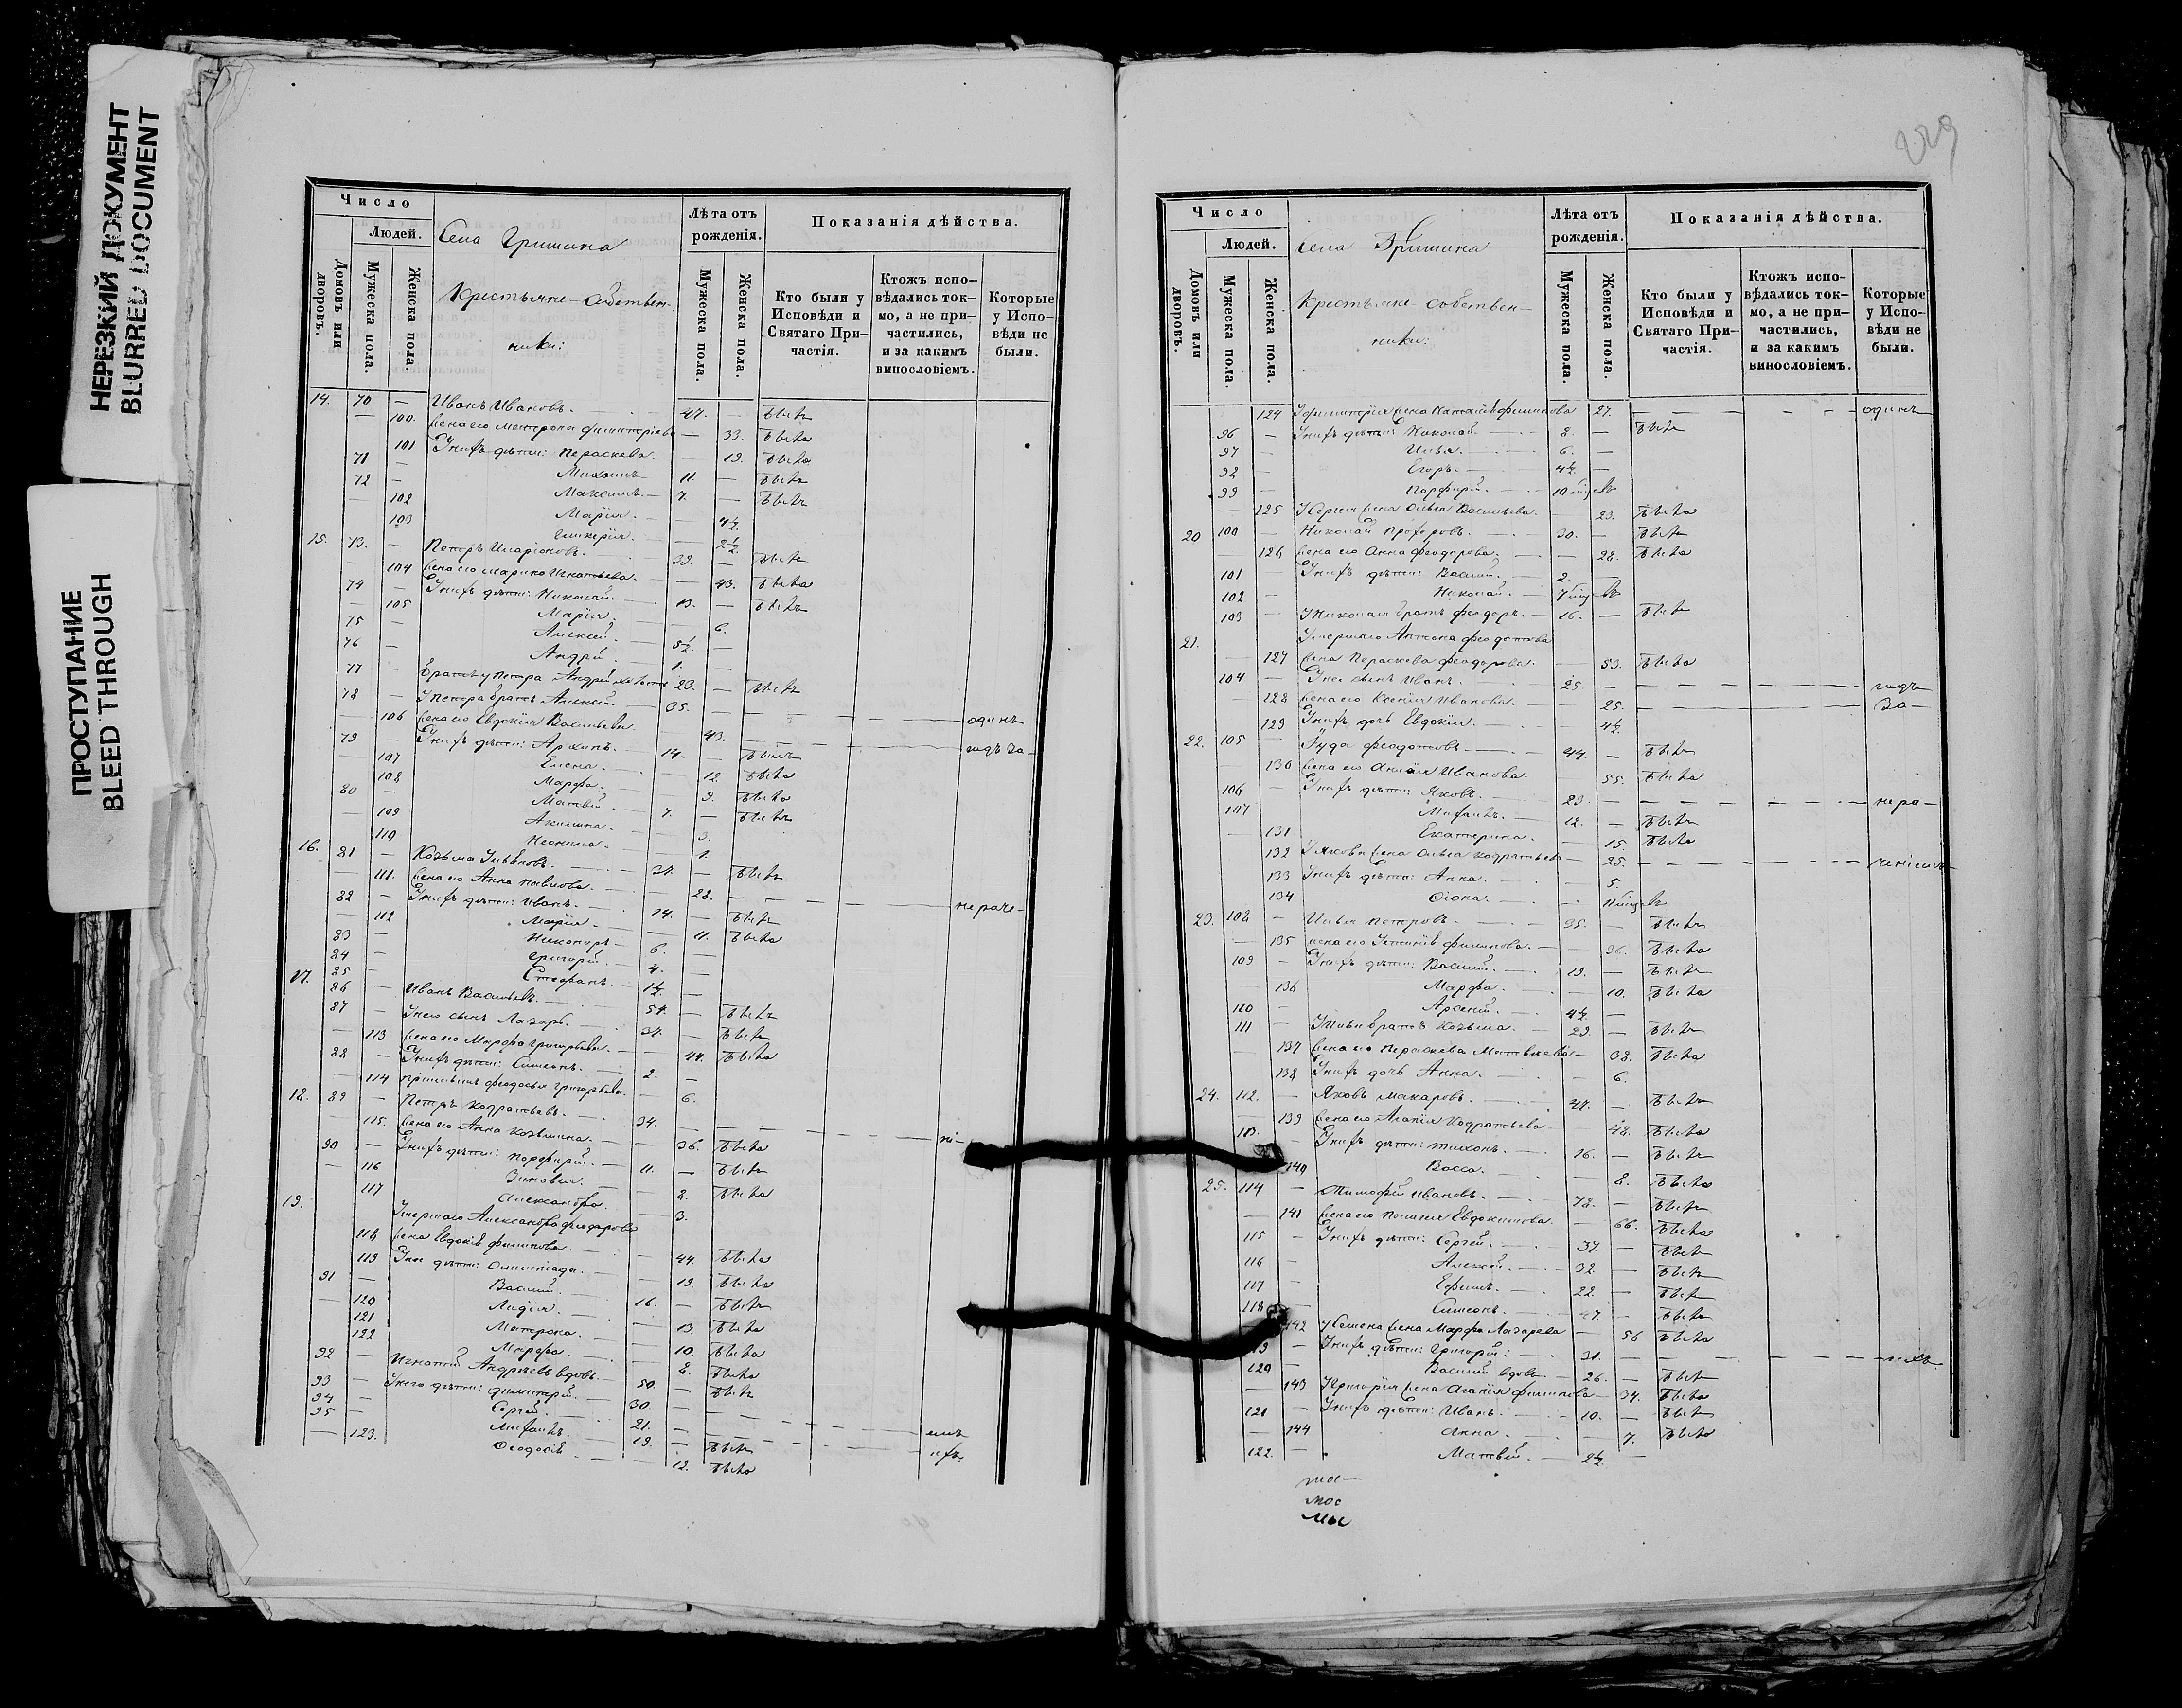 НЕРЕЗКИЙ ДОКУМЕНТ
BLURRED DOCUMENT
ПРОСТУПАНИЕ
BLEED THROUGH
Число
Людей.
Домовъ или дворовъ.
Мужеска пола.
Женска пола.
Села Гришина
Крестьяне-собствен-
ники:
Лѣта отъ рожденія.
Мужеска пола.
Женска пола.
Показанія дѣйства.
Кто были у Исповѣди и Святаго При-частія.
Ктожъ испо-вѣдались ток-мо, а не при-частились, и за какимъ винословіемъ.
Которые у Испо-вѣди не были.
14. 70 — Иванъ Ивановъ. 47. — бытъ
— 100. Жена его Матрона Димитріева — 33. была
101 У нихъ дѣти: Параскева. — 19. была
71 — Михаилъ 11. — бытъ
72 — Максимъ 7. — бытъ
— 102 Марія — 4½
103 Гликерія. — 2½
15. 73. — Петръ Иларіоновъ. 39. — бытъ
— 104 Жена его Марина Игнатьева. — 43. была
74 — У нихъ дѣти: Николай. 13. — бытъ
— 105 Марія. — 6.
75 — Алексѣй. 5½ —
76 — Андрей 1. —
77 — Братъ у Петра Андрей 23. — бытъ
78 — У Петра братъ Алексѣй. 35. — одинъ
— 106 Жена его Евдокія Васильева. — 43. годъ за
79 — У нихъ дѣти: Архипъ. 14. — бытъ
107 Елена. — 12. была
108 Марфа. — 9. была
80 — Матвѣй. 7. — бытъ
— 109 Акилина. — 3.
110 Неонила. — 1.
16. 81 — Козьма Ульяновъ. 31. — бытъ
— 111. Жена его Анна Павлова. — 28. нераче-
82 — У нихъ дѣти: Иванъ. 14. — бытъ
— 112 Марія. — 11. была
83 — Никаноръ 6. —
84 — Григорій. 4. —
85 — Стефанъ. 1½ —
17. 86 — Иванъ Васильевъ. 54. — бытъ
87 — У него сынъ Лазарь. 31. — бытъ
— 113 Жена его Марфа Григорьева. — 44. была
88 — У нихъ дѣти: Симеонъ. 2. —
— 114 Пріемышъ Феодосья Григорьева. — 6.
18. 89 — Петръ Кодратьевъ. 34. — ні-
— 115. Жена его Анна Козьмина. — 36. была
90 — У нихъ дѣти: Порфирій. 11. — бытъ
— 116 Зиновія. — 8. была
117 Александра. — 3.
19. Умершаго Александра Феодорова
118 Жена Евдокія Филипова. — 44. была
119 У нея дѣти: Олимпіада. — 19. была
91 — Василій. 16. — бытъ
— 120 Лидія. — 13. была
121 Матрона. — 10. была
122 Марфа. — 8. была
92 — Игнатій Андреевъ вдовъ. 50. — бытъ
93 — У него дѣти: Димитрій. 30. —
94 — Сергѣй. 21. — емъ
95 — Мифантъ. 19. — бытъ
— 123. Феодосія — 12. была
229
Число
Людей.
Домовъ или дворовъ.
Мужеска пола.
Женска пола.
Села Гришина
Крестьяне собствен-
ники:
Лѣта отъ рожденія.
Мужеска пола.
Женска пола.
Показанія дѣйства.
Кто были у Исповѣди и Святаго При-частія.
Ктожъ испо-вѣдались ток-мо, а не при-частились, и за какимъ винословіемъ.
Которые у Испо-вѣди не были.
124 У Димитрія жена Наталія Филипова 27. — одинъ
96 — У нихъ дѣти: Николай. 8. — бытъ
97 — Илья. 6. —
98 — Егоръ. 4½ —
99 — Порфирій. 10 мѣс.
— 125 У Сергія жена Ольга Васильева. — 23. была
20 100 — Николай Прохоровъ. 30. — бытъ
— 126 Жена его Анна Феодорова. — 28. была
101 У нихъ дѣти: Василій. 2. —
102 — Николай. 7 мѣс.
103 — У Николая братъ Феодоръ. 16. — бытъ
21. Умершаго Антона Феодотова
— 127 Жена Параскева Феодорова. — 53. была
104 — У нея сынъ Иванъ. 25. — годъ
— 128 Жена его Ксенія Иванова. — 25. за
129 У нихъ дочь Евдокія. — 4½
22. 105 — Іуда Феодотовъ. 44. — бытъ
— 130 Жена его Анисія Иванова. — 55. была
106 — У нихъ дѣти: Яковъ. 23. — нера-
107 Мифантъ. 12. — бытъ
— 131 Екатерина. — 15. была
132 У Якова жена Ольга Кодратьева — 25. ченіемъ
133 У нихъ дѣти: Анна. — 5.
134 Ѳіона. — 11 мѣс.
23. 108 — Илья Петровъ. 35. — бытъ
— 135 Жена его Устинія Филипова. — 36. была
109 — У нихъ дѣти: Василій. 13. — бытъ
— 136 Марфа. — 10. была
110 — Арсеній. 4½ —
111 — У Ильи братъ Козьма. 29. — бытъ
— 137 Жена его Параскева Матвѣева — 38. была
138 У нихъ дочь Анна. — 6.
24. 112. — Яковъ Макаровъ. 47. — бытъ
— 139 Жена его Агапія Кодратьева — 48. была
113. — У нихъ дѣти: Тихонъ. 16. — бытъ
140 Васса. — 8. была
25. 114 — Тимофей Ивановъ. 72. — бытъ
— 141 Жена его Пелагія Евдокимова. — 66. была
115 — У нихъ дѣти: Сергѣй. 37. — бытъ
116 — Алексѣй. 32. — бытъ
117 — Ефимъ. 22. — бытъ
118 — Симеонъ. 47. — бытъ
142 У Семена жена Марфа Лазарева — 56 была
119 — У нихъ дѣти: Григорій: 31. —
120 — Василій вдовъ. 26. — бытъ
— 143 У Григорія жена Агапія Филипова — 34. была
121 — У нихъ дѣти: Иванъ. 10. — бытъ
— 144 Анна. — 7. была
122. — Матвѣй. 2½ —